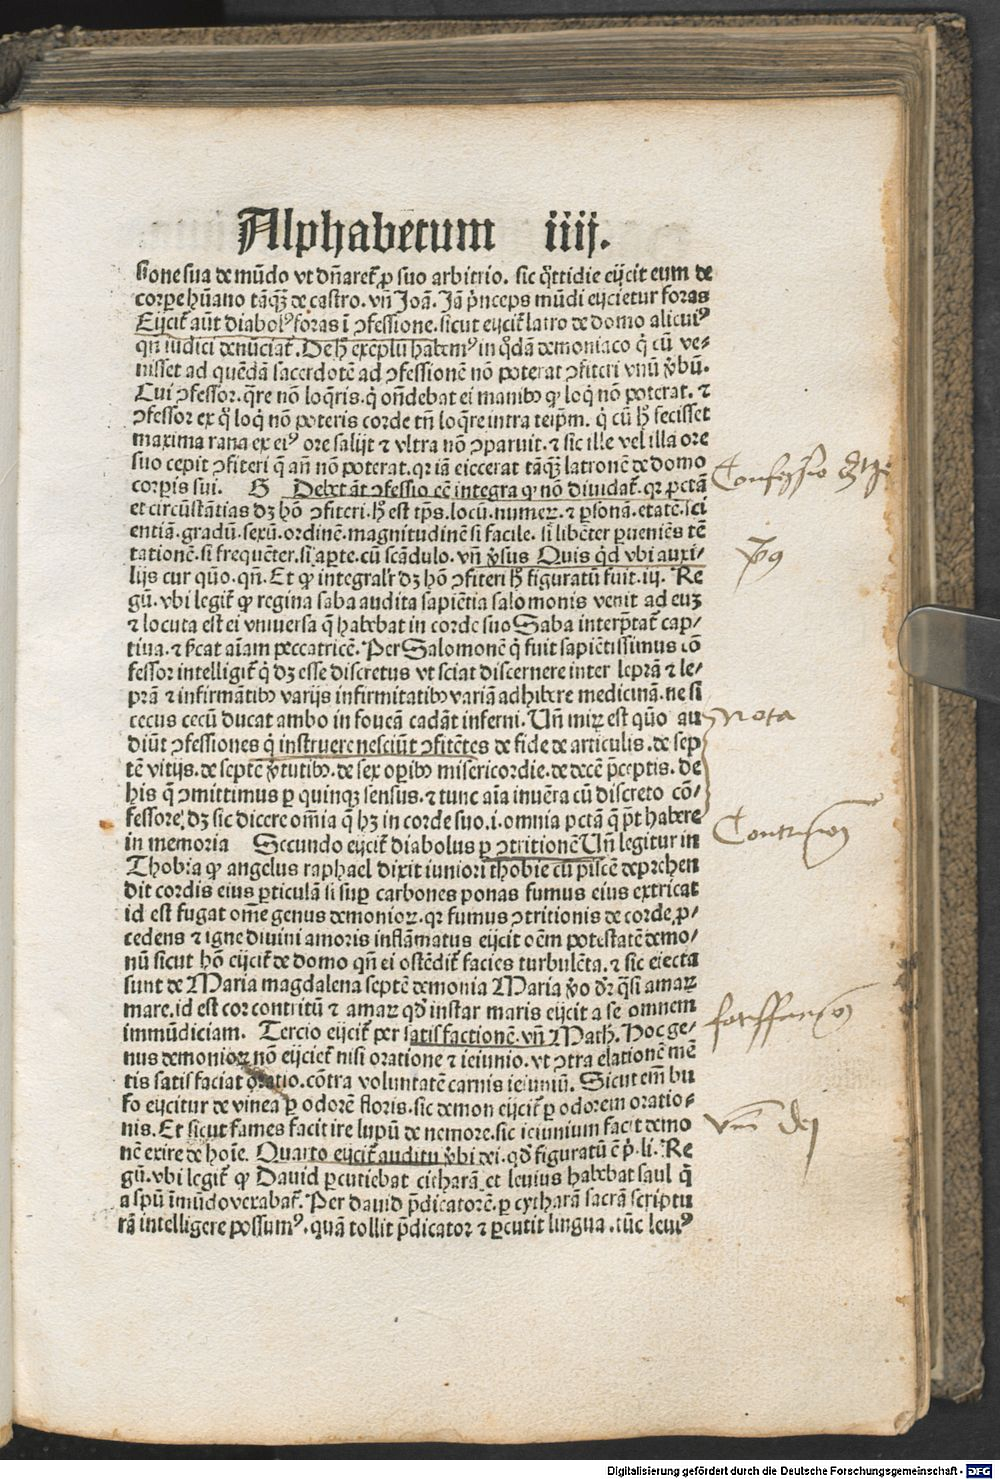 Alphabetum iiij.
ſione sua de mũdo vt dñareť ꝑ suo arbitrio. sic q̃ttidie eijcit eum de
corpe hũano tãqʒ de castro. vñ Joã. Jã p̃nceps mũdi eijcietur foras
Eijciť aũt diabolꝰ foras ĩ ꝯfessione. sicut eijciť latro de domo alicuiꝰ
qñ iudici denũciať. De h̃ exẽplũ habemꝰ in q̃dã demoniaco q̃ cũ ve-
nisset ad quẽdã sacerdotẽ ad ꝯfessionẽ nõ poterat ꝯfiteri vnũ v̓bũ.
Cui ꝯfessor. q̃re nõ loq̃ris. q̃ oñdebat ei manibꝰ ꝙ loq̃ nõ poterat. ⁊
ꝯfessor ex q̃ loq̃ nõ poteris corde tñ loq̃re intra teip̃m. q̃ cũ h̃ fecisset
maxima rana ex eiꝰ ore salijt ⁊ vltra nõ ꝯparuit. ⁊ sic ille vel illa ore
suo cepit ꝯfiteri q̃ añ nõ poterat. qꝛ iã eiecerat tãqʒ latronẽ de domo
corpis sui. G Debet ãt ꝯfessio eẽ integra ꝙ nõ diuidať. qꝛ pctã
et circũstãtias dʒ hõ ꝯfiteri. h̃ est tp̃s. locũ. numeꝝ. ⁊ ꝑsonã. etatẽ. sci
entiã. gradũ. sexũ. ordinẽ. magnitudinẽ si facile. si libẽter ꝑueniẽs tẽ
tationẽ. si frequẽter. si aꝑte. cũ scãdulo. vñ v̓sus Quis q̃d vbi auxi-
lijs cur quõ. qñ. Et ꝙ integralr̃ dʒ hõ ꝯfiteri h̃ figuratũ fuit. iij. Re
gũ. vbi legiť ꝙ regina saba audita sapiẽtia salomonis venit ad euʒ
⁊ locuta est ei vniuersa q̃ habebat in corde suo Saba interp̃tať cap-
tiua. ⁊ p̃cat aĩam peccatricẽ. Per Salomonẽ q̃ fuit sapiẽtissimus cõ
fessor intelligiť q̃ dʒ esse discretus vt sciat discernere inter leprã ⁊ le-
prã ⁊ infirmãtibꝰ varijs infirmitatibꝰ variã adhibere medicinã. ne si
cecus cecũ ducat ambo in foueã cadãt inferni. Uñ miꝝ est quõ au
diũt ꝯfessiones q̃ instruere nesciũt ꝯfitẽtes de fide de articulis. de sep
tẽ vitijs. de septẽ v̓tutibꝰ. de sex oꝑibꝰ misericordie. de decẽ p̃ceptis. de
his q̃ ꝯmittimus ꝑ quinqʒ sensus. ⁊ tunc aĩa inuẽra cũ discreto cõ-
fessore, dʒ sic dicere om̃ia q̃ hʒ in corde suo. i. omnia pctã q̃ p̃t habere
in memoria Secundo eijciť diabolus ꝑ ꝯtritionẽ Uñ legitur in
Thobia ꝙ angelus raphael dixit iuniori thobie cũ piscẽ deprehen
dit cordis eius ꝑticulã si suꝑ carbones ponas fumus eius extricat
id est fugat om̃e genus demonioꝝ. qꝛ fumus ꝯtritionis de corde ꝓ-
cedens ⁊ igne diuini amoris inflãmatus eijcit oẽm potestatẽ demo-
nũ sicut hõ eijciť de domo qñ ei ostẽdiť facies turbulẽta. ⁊ sic eiecta
sunt de Maria magdalena septẽ demonia Maria v̓o dr̃ q̃si amaꝝ
mare. id est cor contritũ ⁊ amaꝝ qd̃ instar maris eijcit a se omnem
immũdiciam. Tercio eijciť per satisfactionẽ. vñ Math. Hoc ge-
nus demonioꝝ nõ eijcieť nisi oratione ⁊ ieiunio. vt ꝯtra elationẽ mẽ
tis satisfaciat oratio. cõtra voluntatẽ carnis ieiuniũ. Sicut em̃ bu
fo eijcitur de vinea ꝑ odorẽ floris. sic demon eijciť ꝑ odorem oratio-
nis. Et sicut fames facit ire lupũ de nemore. sic ieiunium facit demo
nẽ exire de hoĩe. Quarto eijciť auditu v̓bi dei. qd̃ figuratũ ẽ p̓. li. Re
gũ. vbi legiť ꝙ Dauid ꝑcutiebat citharã et leuius habebat saul q̃
a spũ ĩmũdo vexabať. Per dauid p̃dicatorẽ. ꝑ cytharã sacrã scriptu
rã intelligere possumꝰ. quã tollit p̃dicator ⁊ ꝑcutit lingua. tũc leuiꝰ
Confessio
Nota
Contricion
satisffaccion
vm̃ dei
Digitalisierung gefördert durch die Deutsche Forschungsgemeinschaft - DFG